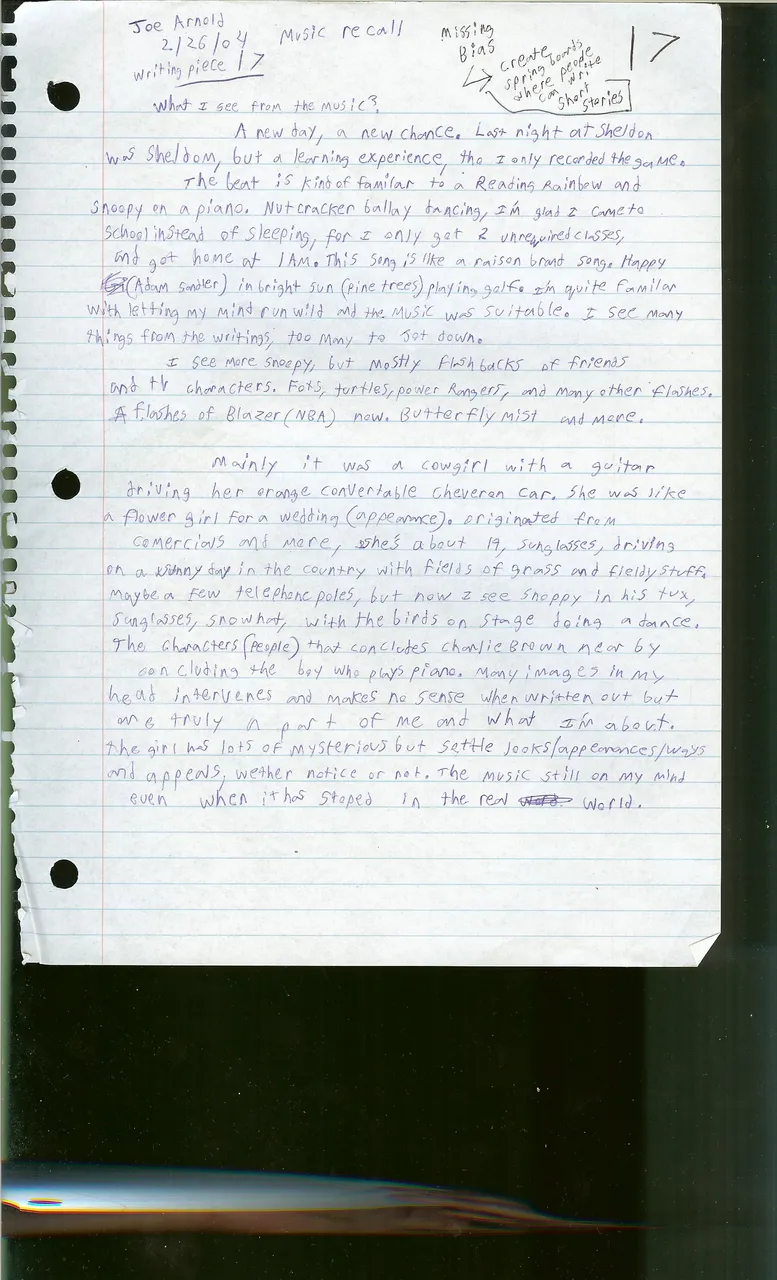 Joe Arnold
2/26/04
Writing piece 17
Music recall
Missing
Bias
create
spring boards
where people
can write
short
stories
17
What I see from the music?
A new day, a new chance. Last night at Sheldon
was Sheldom, but a learning experience, tho I only recorded the game.
The beat is kind of familar to a Reading Rainbow and
Snoopy on a piano. Nutcracker ballay dancing, I'm glad I came to
school instead of sleeping, for I only got 2 unrequired classes,
and got home at 1 AM. This song is like a raison brand song. Happy
(Adam Sandler) in bright sun (pine trees) playing golf. I'm quite familar
with letting my mind run wild and the music was suitable. I see many
things from the writings, too many to jot down.
I see more snoopy, but mostly flashbacks of friends
and tv characters. Fots, turtles, power Rangers, and many other flashes.
A flashes of Blazer (NBA) now. Butterfly mist and more.
Mainly it was a cowgirl with a guitar
driving her orange convertable cheveron car. She was like
a flower girl for a wedding (appearance). originated from
comercials and more, she's about 19, sunglasses, driving
on a sunny day in the country with fields of grass and fieldy stuff.
Maybe a few telephone poles, but now I see snoppy in his tux,
sunglasses, snowhat, with the birds on stage doing a dance.
The characters (people) that concludes Charlie Brown near by
con cluding the boy who plays piano. Many images in my
head intervenes and makes no sense when written out but
are truly a part of me and what I'm about.
The girl has lots of mysterious but settle looks/appearences/ways
and appeals, wether notice or not. The music still on my mind
even when it has stoped in the real world.